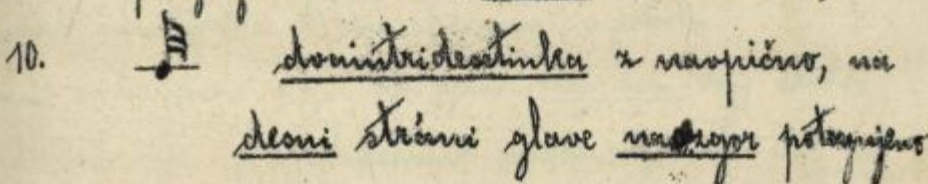 10. dvaintridesetinka z navpično, na
desni stráni glave navzgor potegnjeno